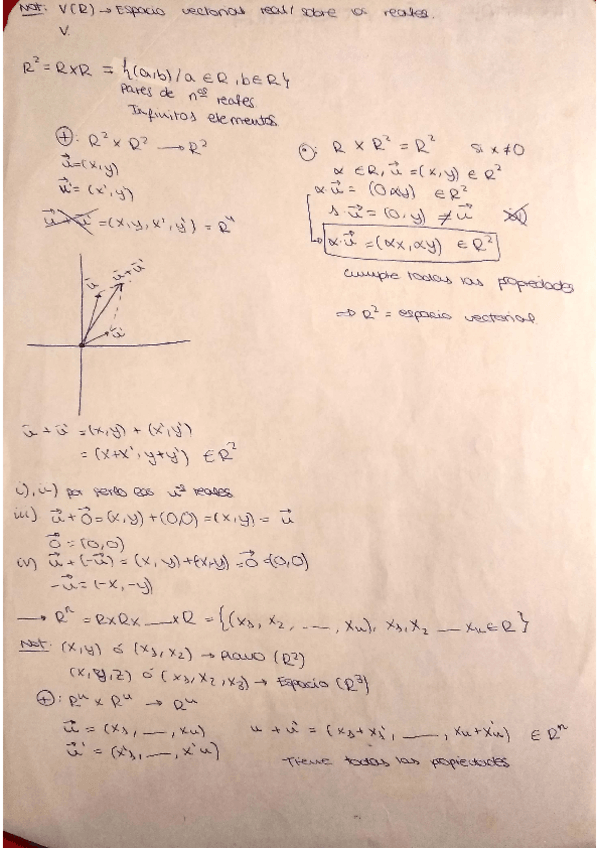 Not: V(R) → Espacio vectorial real/sobre los reales.
V.
R² = R×R = {(a,b) / a ∈ R, b ∈ R}
Pares de nºs reales
Infinitos elementos
⊕: R² × R² → R²
u⃗ = (x,y)
u⃗' = (x',y')
u⃗ + u⃗' = (x,y,x',y') = R⁴
ū
ū+ū'
ū'
ū + ū' = (x,y) + (x',y')
= (x+x', y+y') ∈ R²
⊙: R × R² = R² si x≠0
α ∈ R, u⃗ = (x,y) ∈ R²
α·u⃗ = (0,αy) ∈ R²
1·u⃗ = (0,y) ≠ u⃗
α·u⃗ = (αx, αy) ∈ R²
cumple todas las propiedades
⇒ R² = espacio vectorial
i), ii) por serlo los nº reales
iii) u⃗ + 0⃗ = (x,y) + (0,0) = (x,y) = u⃗
0⃗ = (0,0)
iv) u⃗ + (-u⃗) = (x,y) + (-x,-y) = 0⃗ = (0,0)
-u⃗ = (-x,-y)
→ Rⁿ = R×R× __ ×R = {(x₁, x₂, ---, xₙ), x₁, x₂ --- xₙ ∈ R}
Not: (x,y) ó (x₁,x₂) → Plano (R²)
(x,y,z) ó (x₁,x₂,x₃) → Espacio (R³)
⊕: Rⁿ × Rⁿ → Rⁿ
u⃗ = (x₁, __, xₙ) u + u⃗' = (x₁+x₁', __, xₙ+xₙ') ∈ Rⁿ
u⃗' = (x'₁, __, x'ₙ) Tiene todas las propiedades